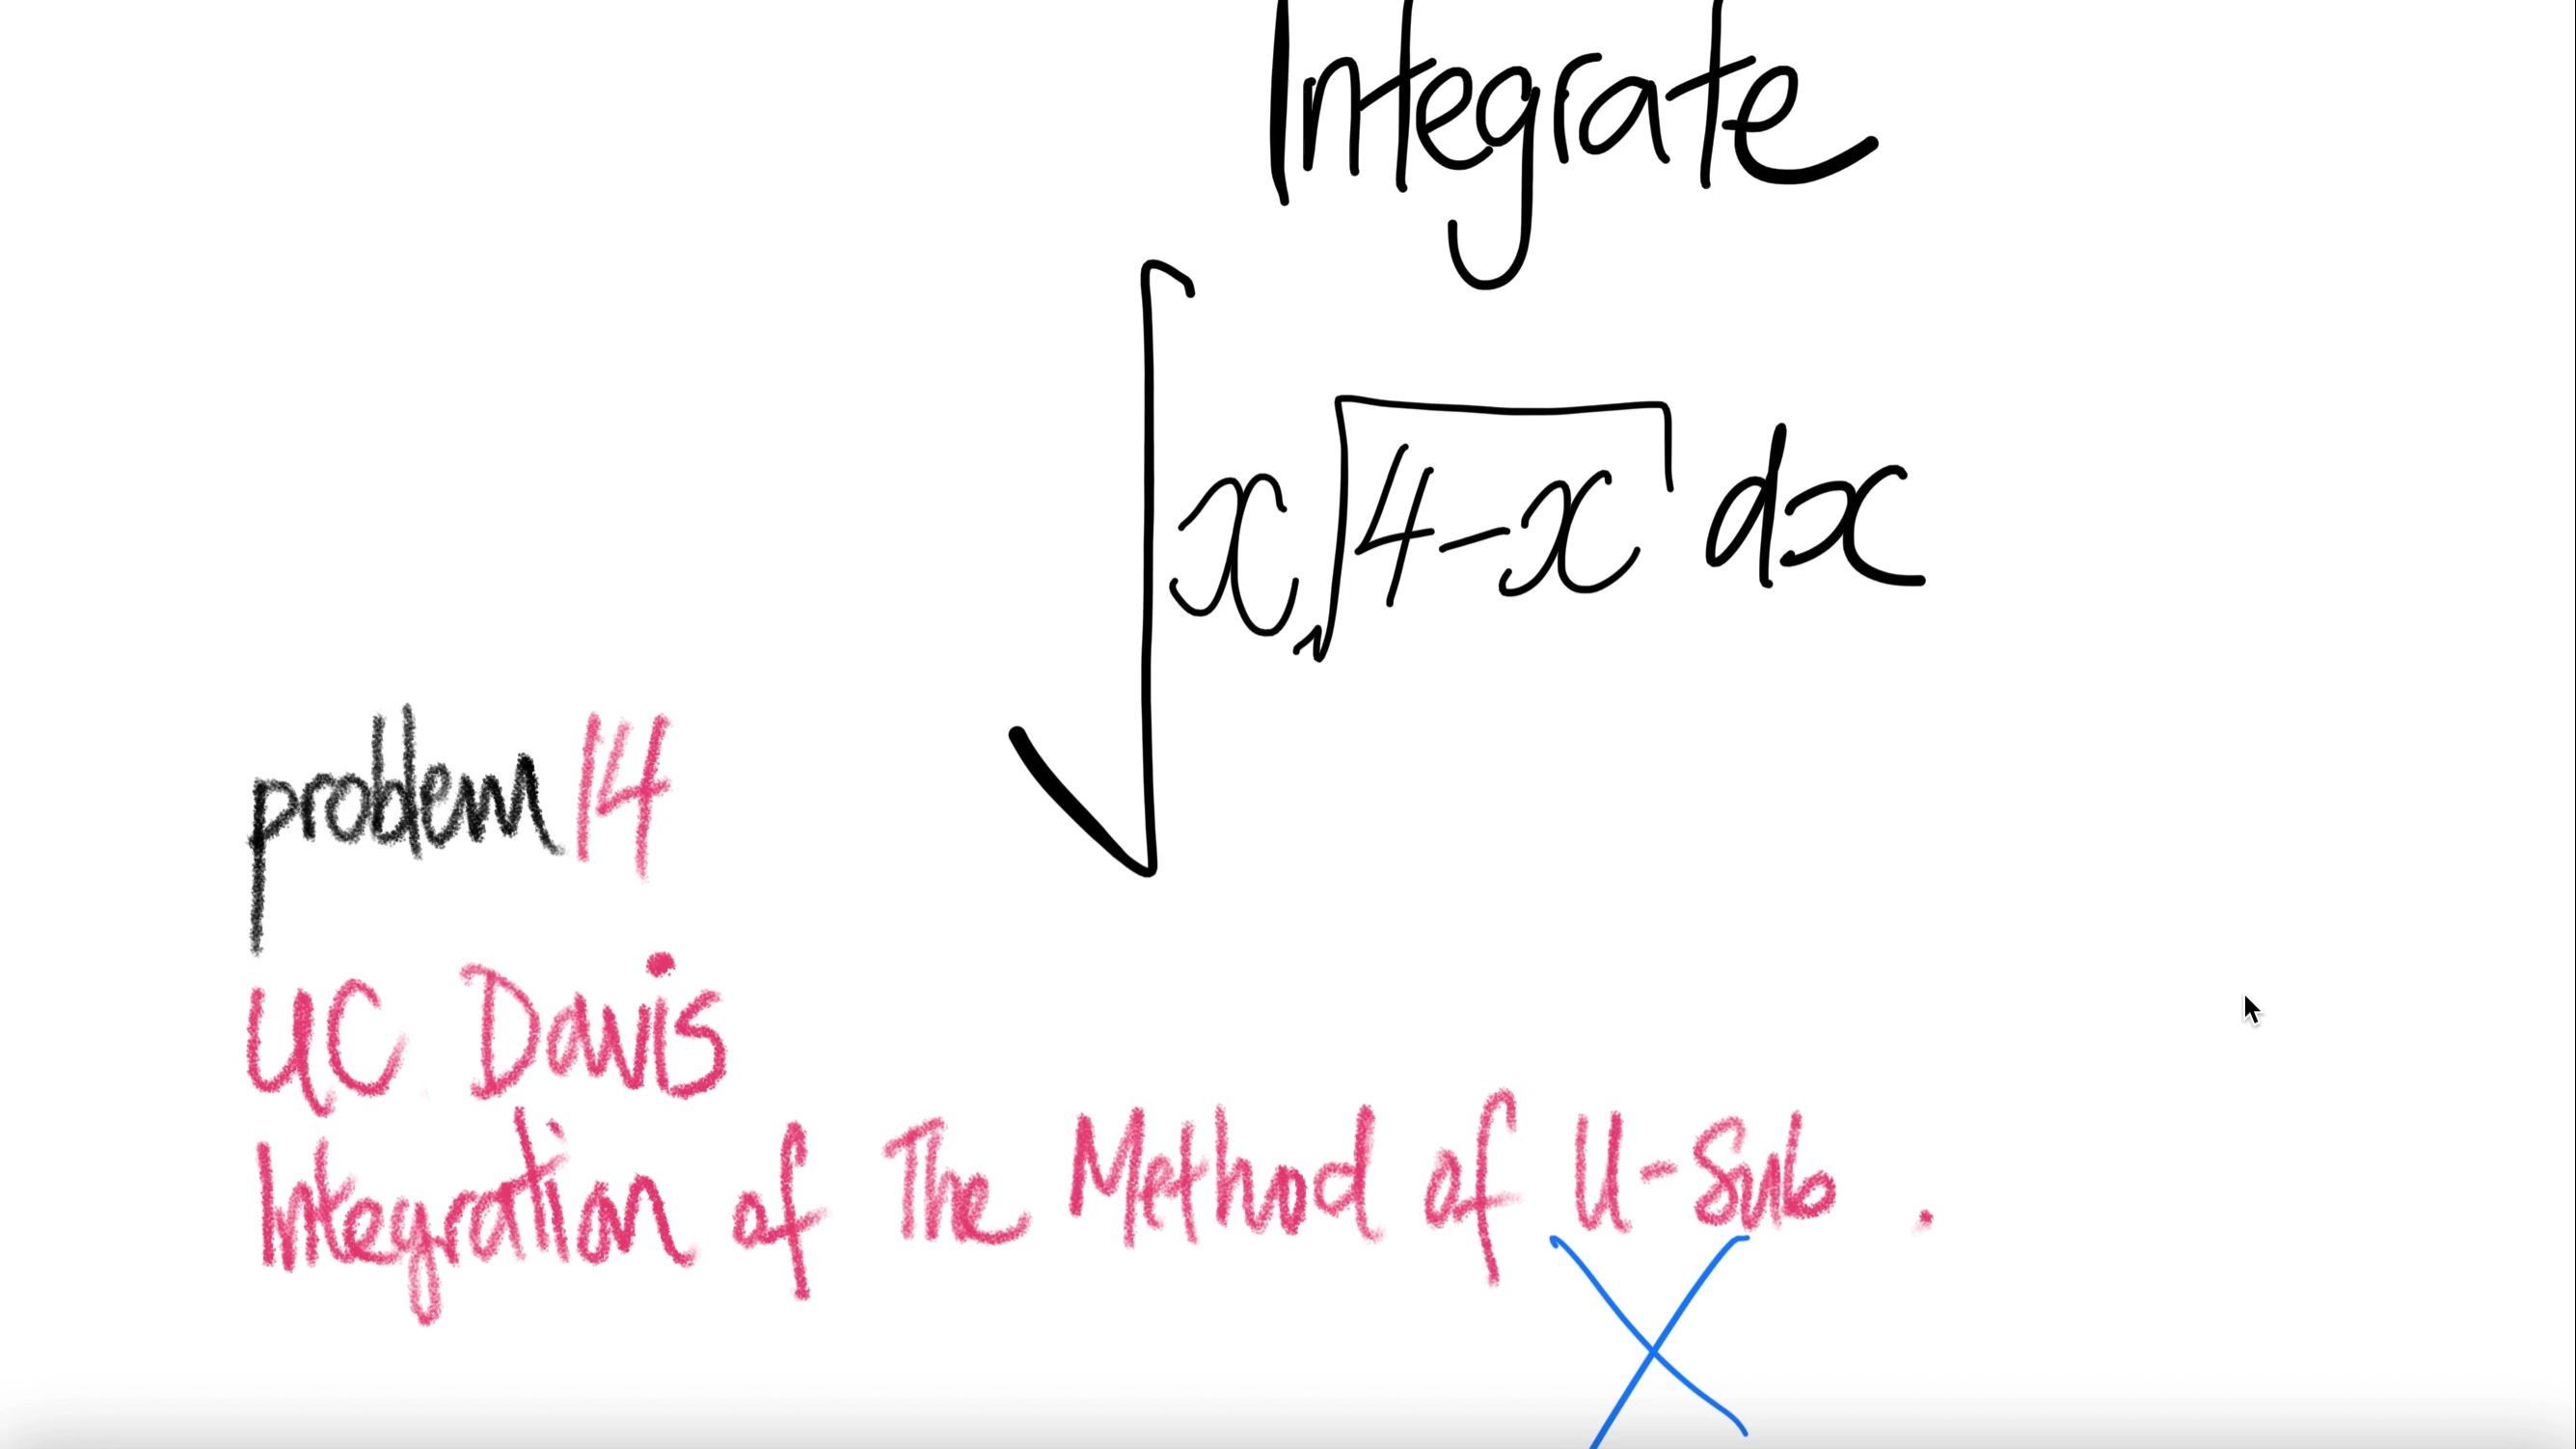 Integrate
∫ x√4-x dx
problem 14
UC Davis
Integration of The Method of U-Sub .